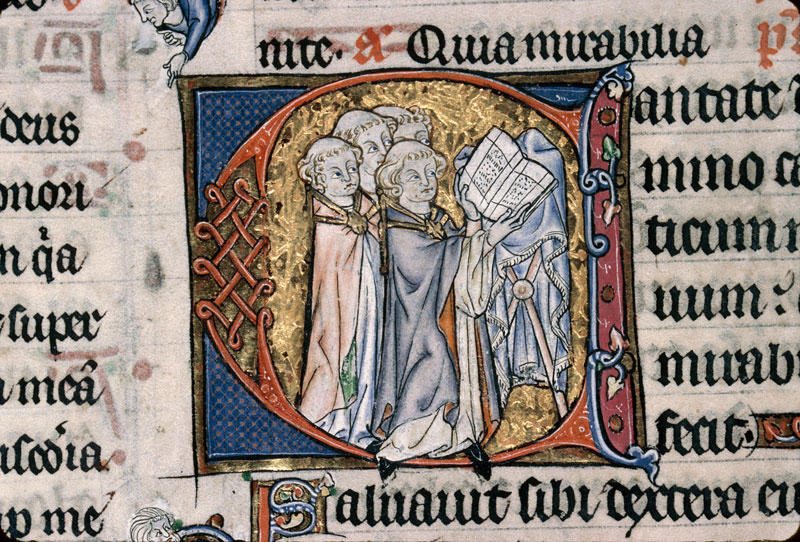 deus
onori
m q̃a
super
a meã
iscoꝛ̃ia
up me
nite. a Quia mirabilia
antate
mino ca
ticum n
uum:
mirabi
fecit.
Saluauit sibi dextera eiu